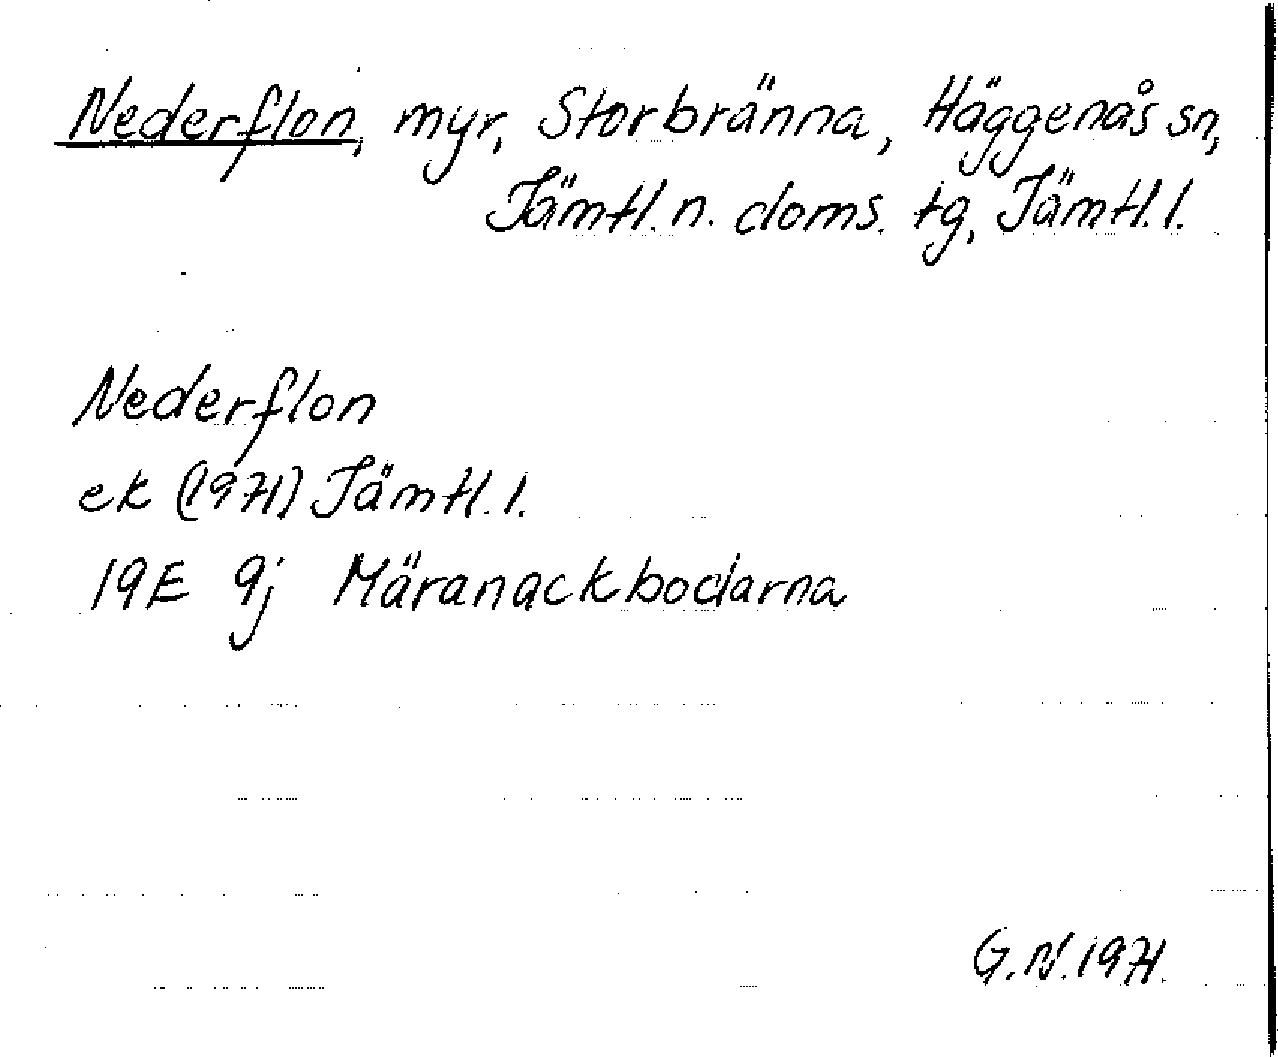 Nederflon, myr, Storbränna, Häggenås sn,
Jämtl. n. doms. tg, Jämtl. l.
Nederflon
ek (1971) Jämtl. l.
19E 9j Märanackbodarna
G.N. 1971.